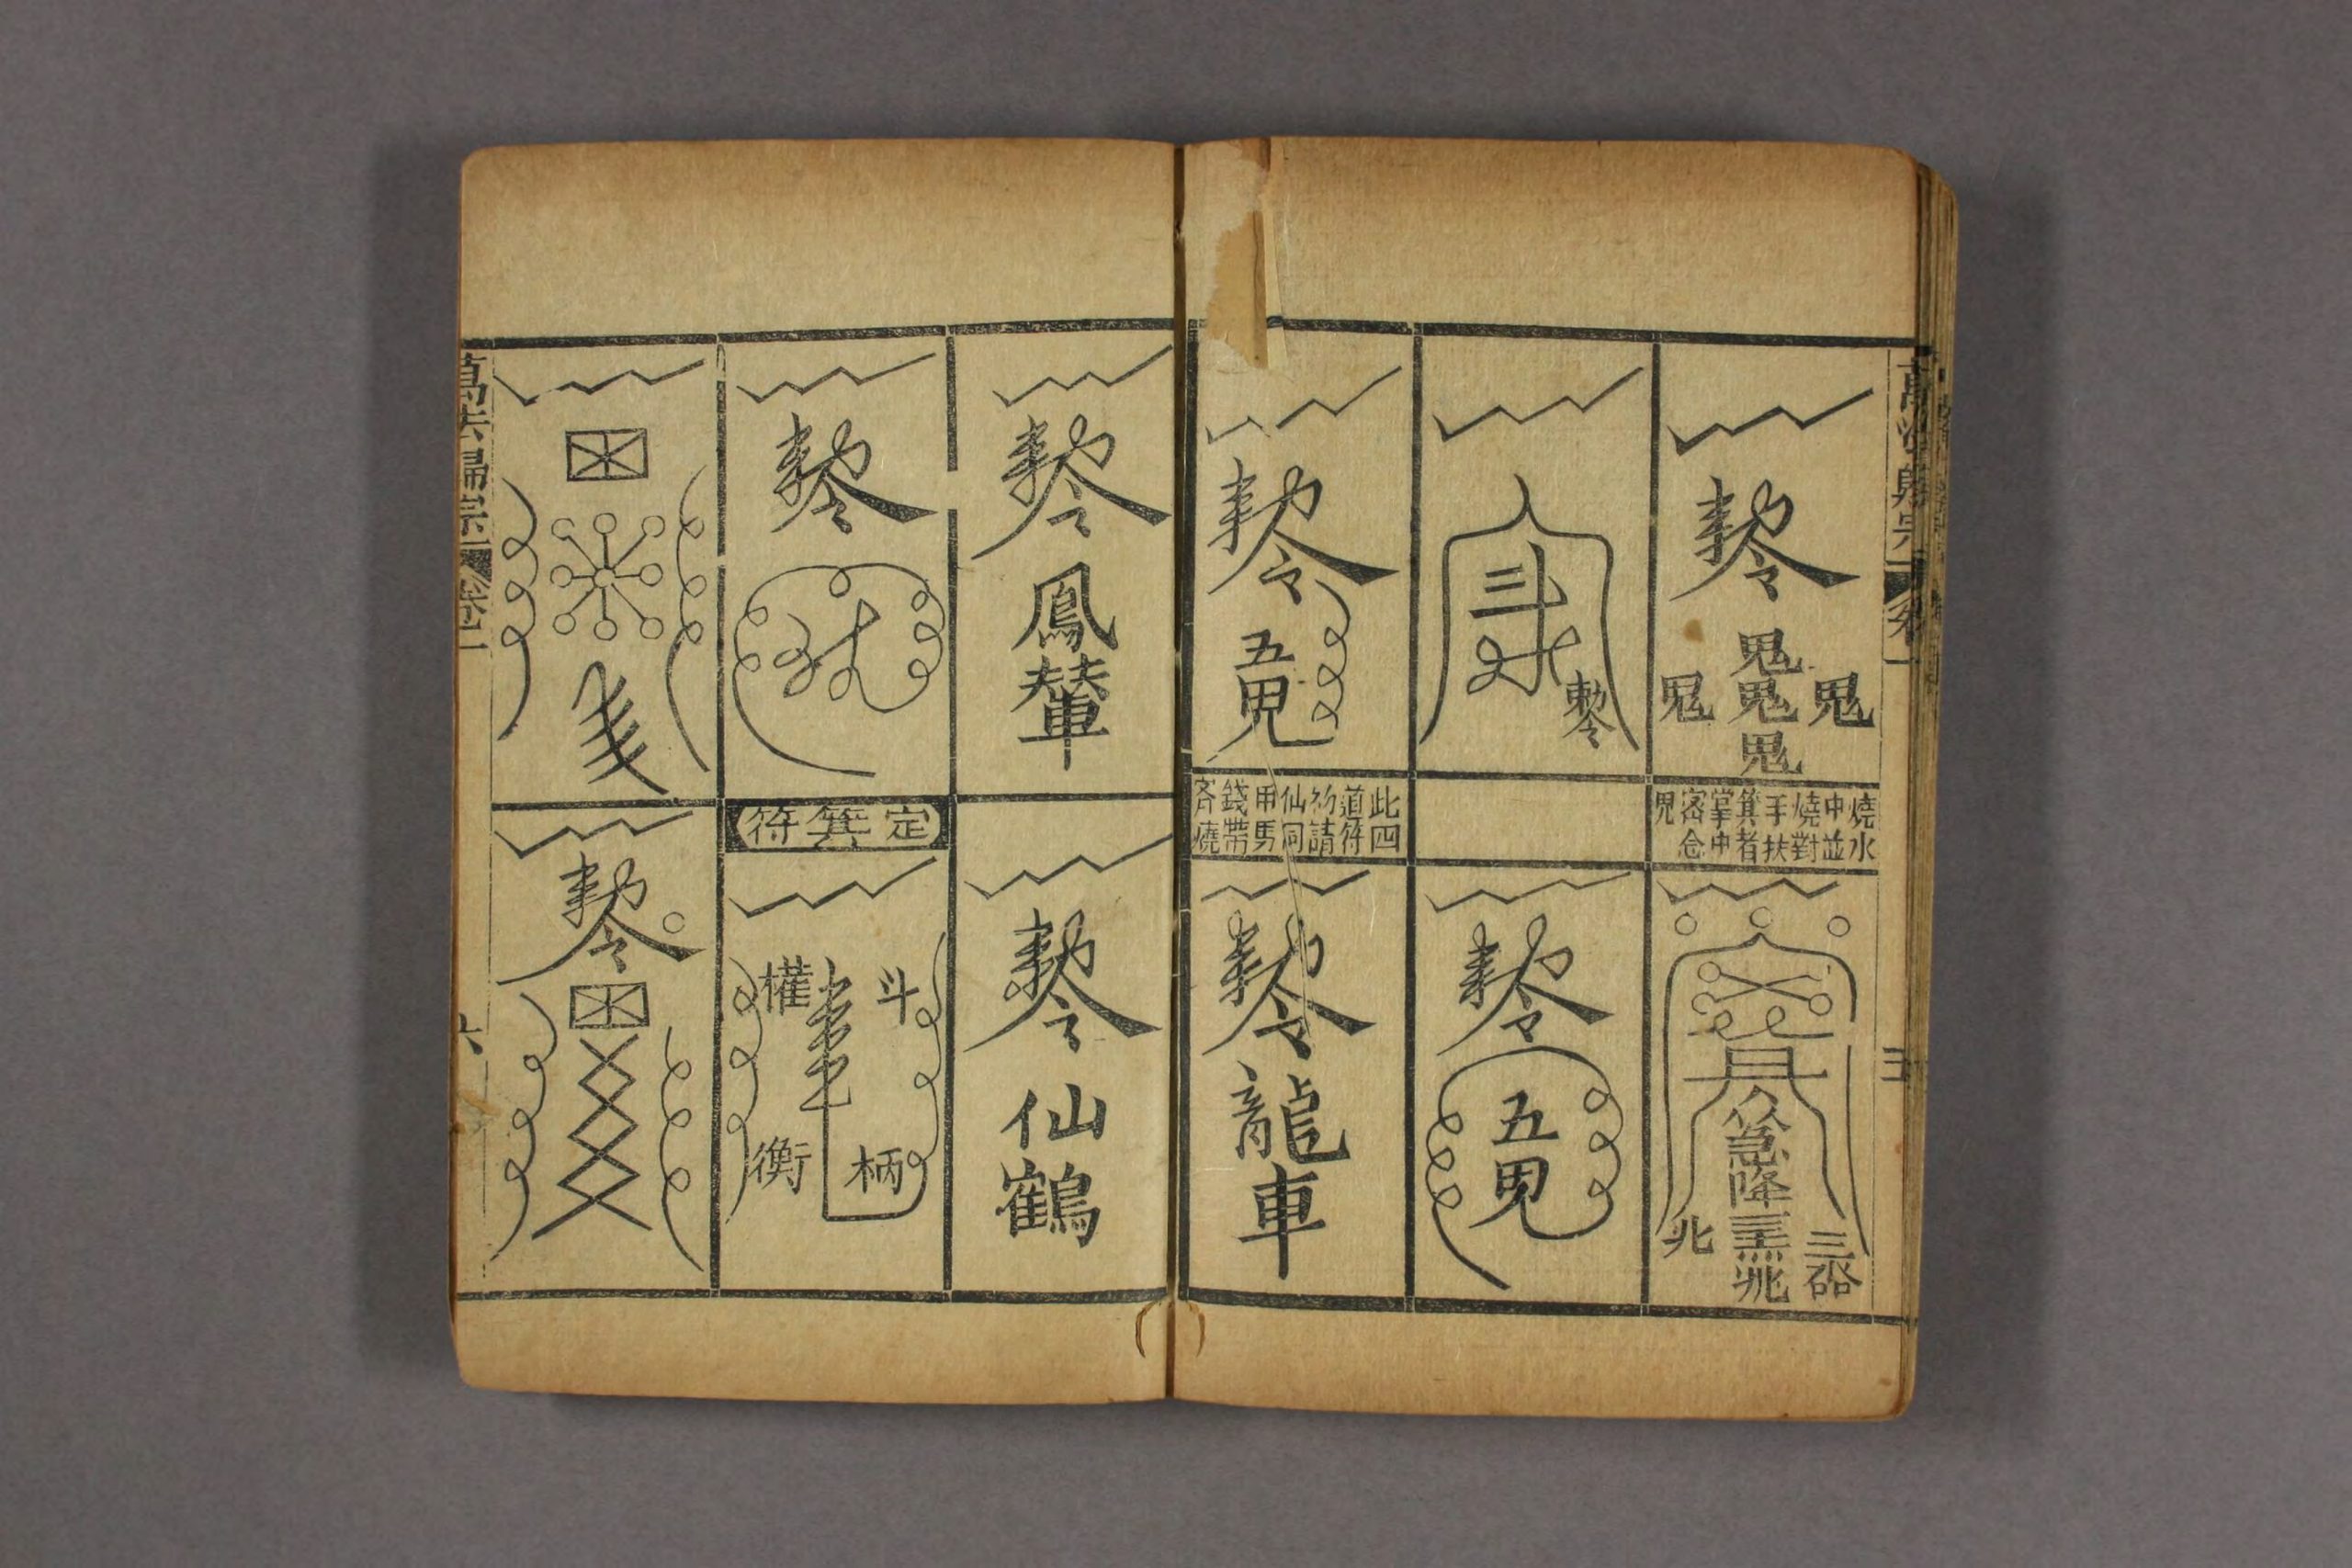 萬法歸宗
卷一
五
敕令
鬼
鬼 鬼 鬼
鬼
燒水
中並
燒對
手扶
箕者
掌中
密念
咒
急降
三台
敕令
敕令
五鬼
敕令
五鬼
此四
道符
初請
仙同
甲馬
錢帶
齊燒
敕令
龍車
敕令
鳳輦
敕令
仙鶴
敕令
定箕符
斗柄
權衡
敕令
萬法歸宗
卷一
六